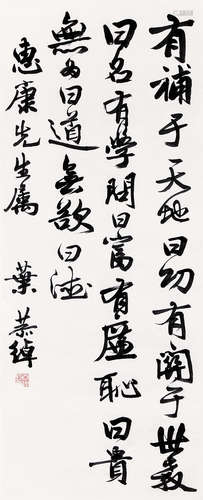 有補于天地曰功有關于世教
曰名有學問曰富有廉恥曰貴
無為曰道無欲曰德
惠康先生屬 葉恭綽